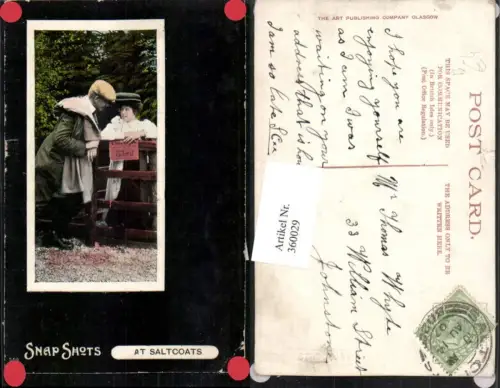 SNAP SHOTS
AT SALTCOATS
THE ART PUBLISHING COMPANY GLASGOW
POST CARD.
THIS SPACE MAY BE USED
FOR COMMUNICATION
(In British Isles only.)
(Post Office Regulation.)
THE ADDRESS ONLY TO BE
WRITTEN HERE.
I hope you are
enjoying yourself
as I am I was
waiting on your
address that is how
I am so late
Mr Thomas Whyte
33 William Street
Johnstone
Artikel Nr.
360029